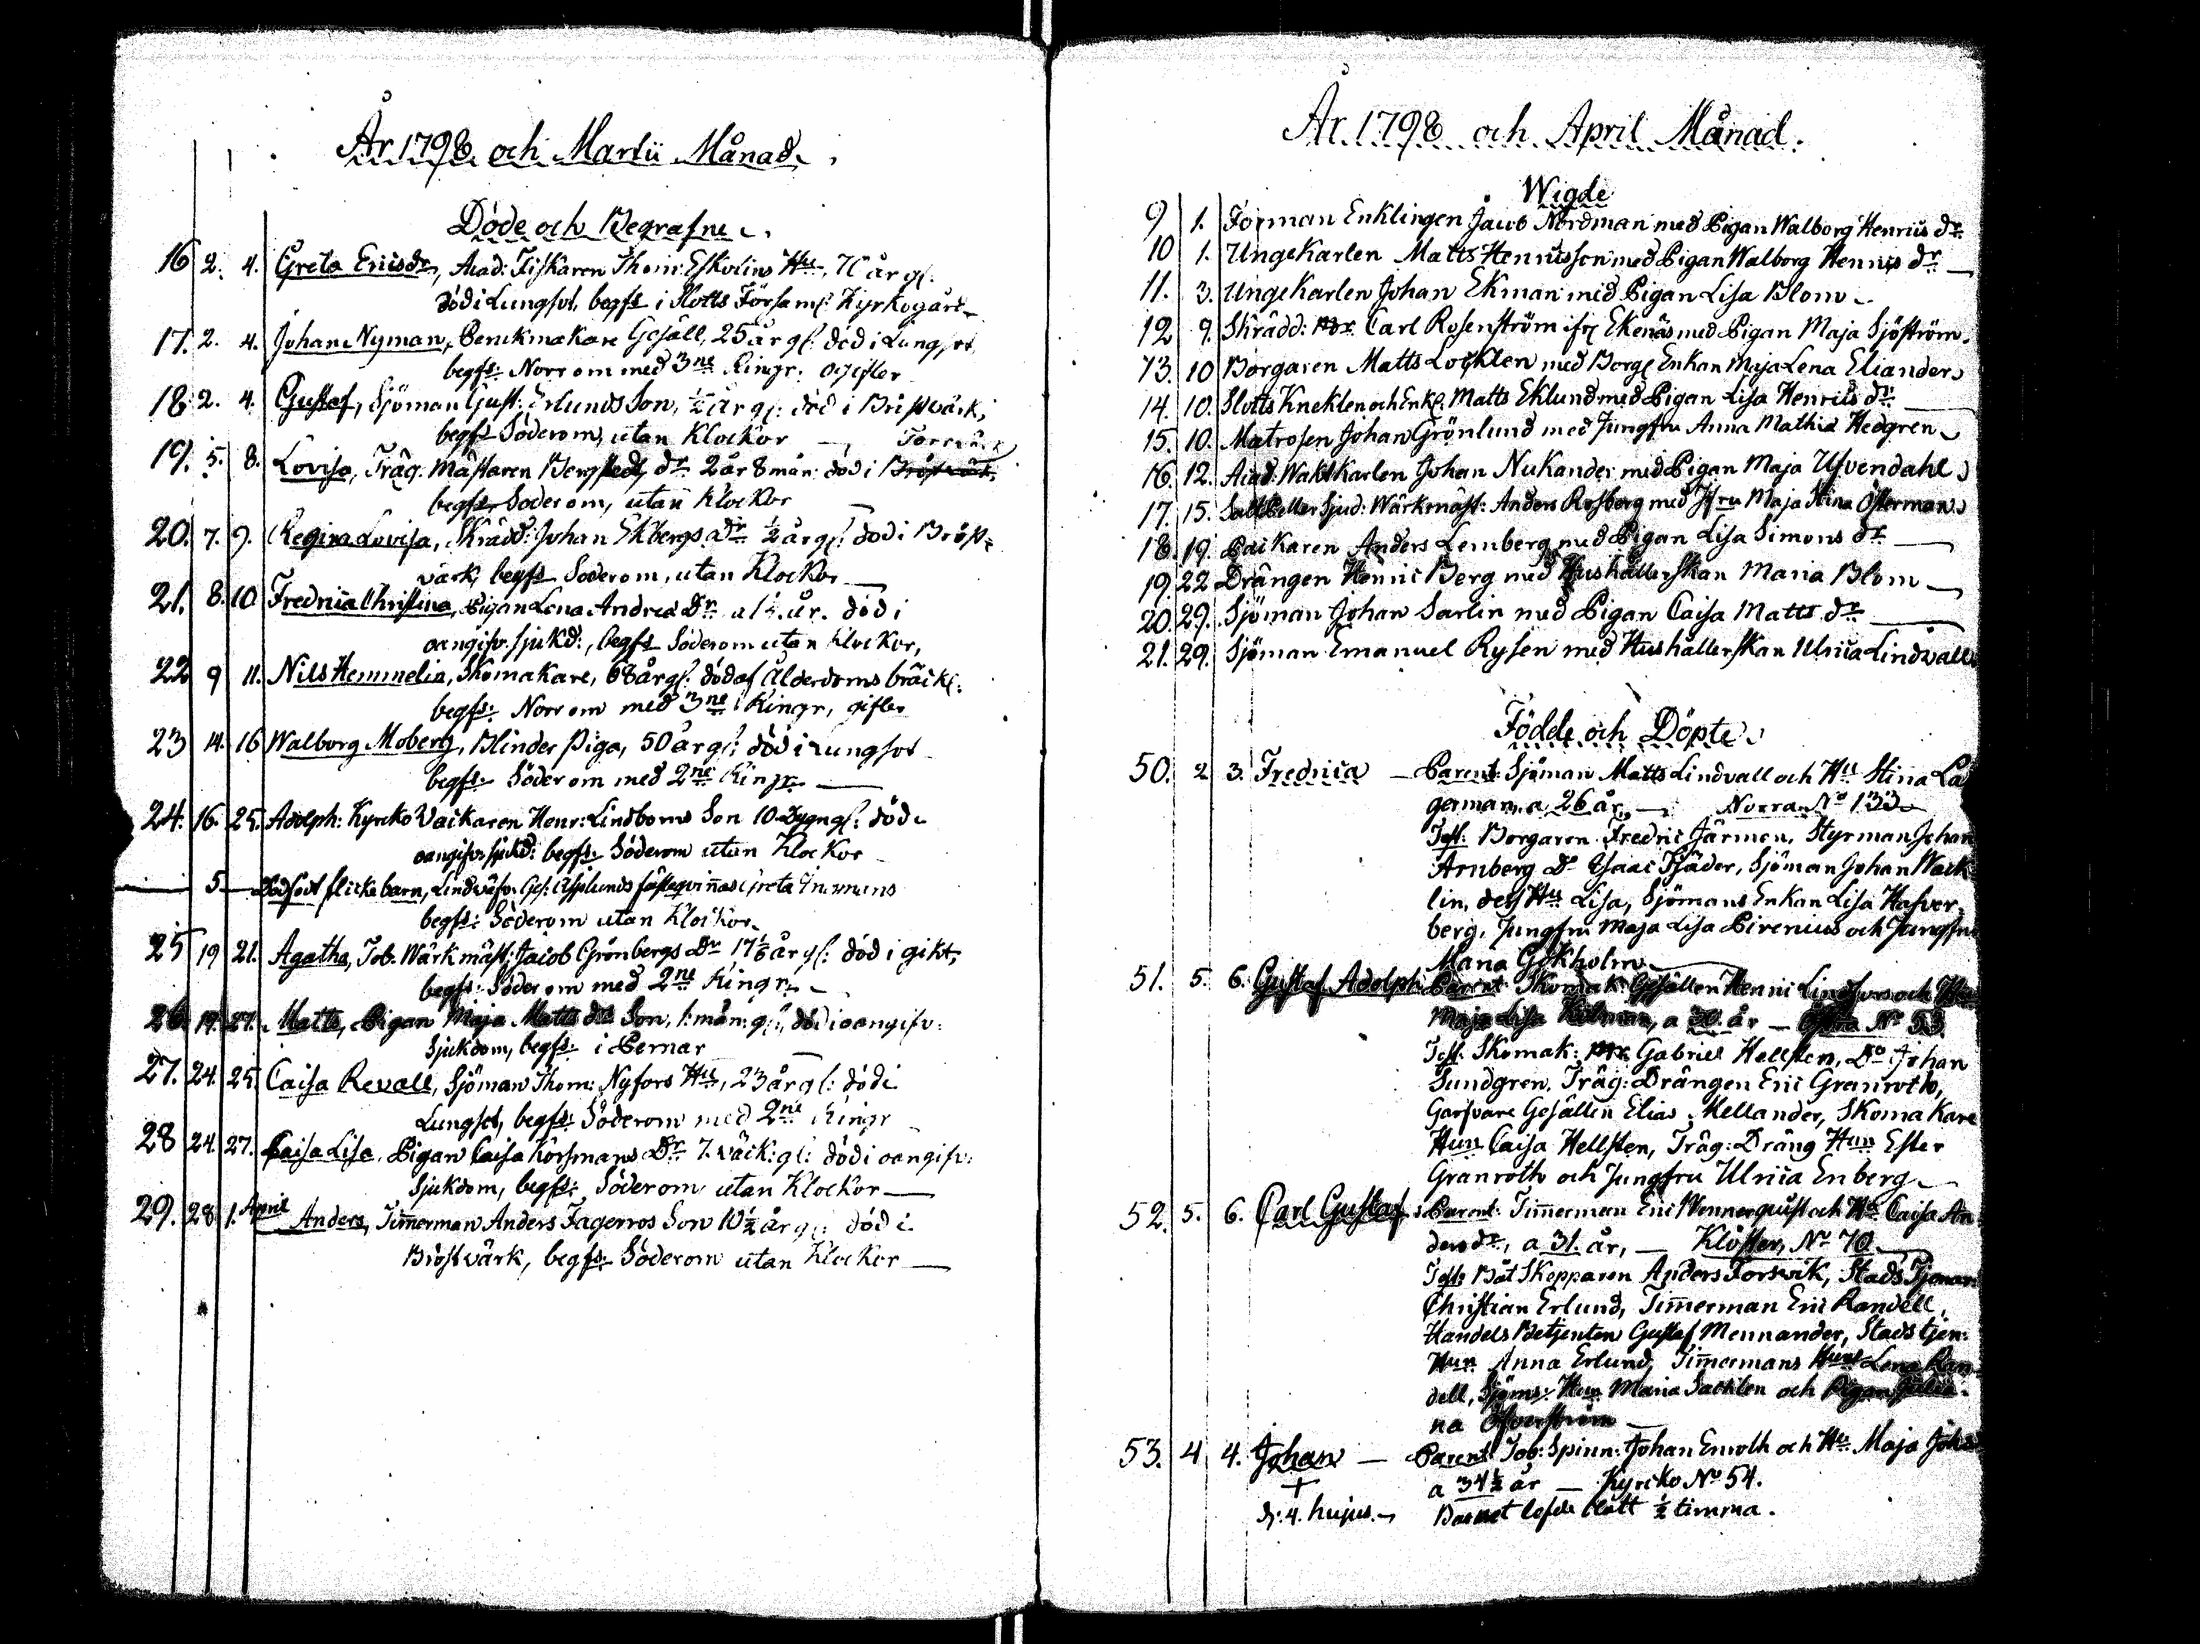 År 1798 och Martii Månad.
Döde och Begrafne.
16 2. 4. Greta Ericsdr, Acad: Fiskaren Thom: Eskolins Hu, 70 år gl:
död i Lungsot, begfs i Slotts Församl: Kyrkogård
17. 2. 4. Johan Nyman, Perukmakare Gesäll, 25 år gl: död i Lungsot,
begfs: Norr om med 3ne Ringr: ogifter
18 2. 4. Gustaf, Sjöman Gust: Erlunds Son, ½ år gl: död i Bröstvärk,
begfs Söderom, utan Klockor
19. 5. 8. Lovisa, Träg: Mästaren Bergstedts dr 2 år 8 mån: död i Bröstvärk,
begfs Söderom, utan Klockor
20. 7. 9. Regina Lovisa, Skrädd: Johan Ekbergs dr ½ år gl: död i Bröst-
värk, begfs Söderom, utan Klockor
21. 8. 10 Fredrica Christina, Pigan Lena Andreæ Dr a 1½ år. död i
oangifv. sjukd:, begfs Söderom utan Klockor,
22 9 11. Nils Hemmelin, Skomakare, 68 år gl: död af Ålderdoms bräckl:
begfs: Norr om med 3ne Ringr, gifter
23 14. 16 Walborg Moberg, Blinder Piga, 50 år gl: död i Lungsot
begfs: Söder om med 2ne Ringr
24. 16. 25. Adolph: Kyrko Vacktaren Henr: Lindboms Son 10 Dygn gl: död i
oangifv. sjukd: begfs: Söderom utan Klockor
5 Dödfödt flicke barn, Lindväfv: Ges: Asplunds fästeqvinnas Greta
begfs: Söderom utan Klockor
25 19 21. Agatha, Tob. Wärkmäst: Jacob Grönbergs Dr 17½ år gl: död i gikt,
begfs: Söder om med 2ne Ringr
26 19. 27. Matts, Pigan Maja Matts dr Son, 1. mån: gl:, död i oangifv:
sjukdom, begfs: i Pernar
27. 24. 25. Caisa Revall, Sjöman Thom: Nyfors Hu, 23 år gl: död i
Lungsot, begfs: Söderom med 2ne Ringr
28 24. 27. Caisa Lisa, Pigan Caisa Korsmans Dr 7. väck: gl: död i oangifv:
Sjukdom, begfs: Söderom utan Klockor
29. 28 1. April Anders, Timmerman Anders Fagerros Son 10½ år gl: död i
Bröstvärk, begfs: Söderom utan Klockor
År 1798 och April Månad.
Wigde
9 1. Forman Enklingen Jacob Nordman med Pigan Walborg Henrics dr
10 1. Unge Karlen Matts Henricsson med Pigan Walborg Henrics dr
11. 3. Unge Karlen Johan Ekman med Pigan Lisa Blom
12 9. Skrädd: Mr Carl Rosenström ifr Ekenäs med Pigan Maja Sjöström
13. 10 Borgaren Matts Locklen med Borg Enkan Maja Lena Elianders
14. 10. Slotts Knekten och Enkl. Matts Eklund med Pigan Lisa Henrics dr
15. 10. Matrosen Johan Grönlund med Jungfru Anna Mathia Hedgren
16. 12. Acad: Waktkarlen Johan Nukander med Pigan Maja Ufvendahl
17. 15. Saltpetter Sjud: Wärkmäst: Anders Rosberg med Jfru Maja Stina Österman
18. 19. Packaren Anders Lemberg med Pigan Lisa Simons dr
19. 22 Drängen Henric Berg med Hushållerskan Maria Blom
20. 29. Sjöman Johan Sarlin med Pigan Caisa Matts dr
21. 29. Sjöman Emanuel Rysen med Hushållerskan Ulrica Lindvall
Födde och Döpte
50. 2 3. Fredrica — Parent: Sjöman Matts Lindvall och Hu Stina La
german, a 26 år, — Norra No 133
Test: Borgaren Fredric Järmen, Styrman Johan
Arnberg Do Isaac Fjäder, Sjöman Johan Wack
lin, dess Hu Lisa, Sjömans Enkan Lisa Hafver
berg, Jungfru Maja Lisa Pirenius och Jungfru
Maria Gökholm
51. 5. 6. Gustaf Adolph: Parent: Skomak: Gesällen Henric Lindfors och Hu
Maja Lisa, a 30 år — No 53.
Test. Skomak: Mr Gabriel Hellsten, Do Johan
Sundgren, Träg: Drängen Eric Granroth,
Garfvare Gesällen Elias Mellander, Skomakare
Hun Caisa Hellsten, Träg: Dräng Hun Ester
Granroth och Jungfru Ulrica Enberg
52. 5. 6. Carl Gustaf: Parent: Timmerman Eric Wennerquist och Hu Caisa An
ders dr, a 31. år, — Kloster, No 70
Test: Båt Skepparen Anders Forsvik, Stads Tjenar
Christian Erlund, Timmerman Eric Randell,
Handels Betjenten Gustaf Mennander, Stads tjen:
Hun Anna Erlund, Timmermans Hun Lena Ran
dell, Sjöms: Hun Maria Sacklen och Pigan
na
53. 4 4. Johan — Parent: Tob: Spinn: Johan Enroth och Hu Maja Johs
+ a 34½ år — Kyrko No 54.
d: 4. hujus. Barnet lefde blått ½ timma.